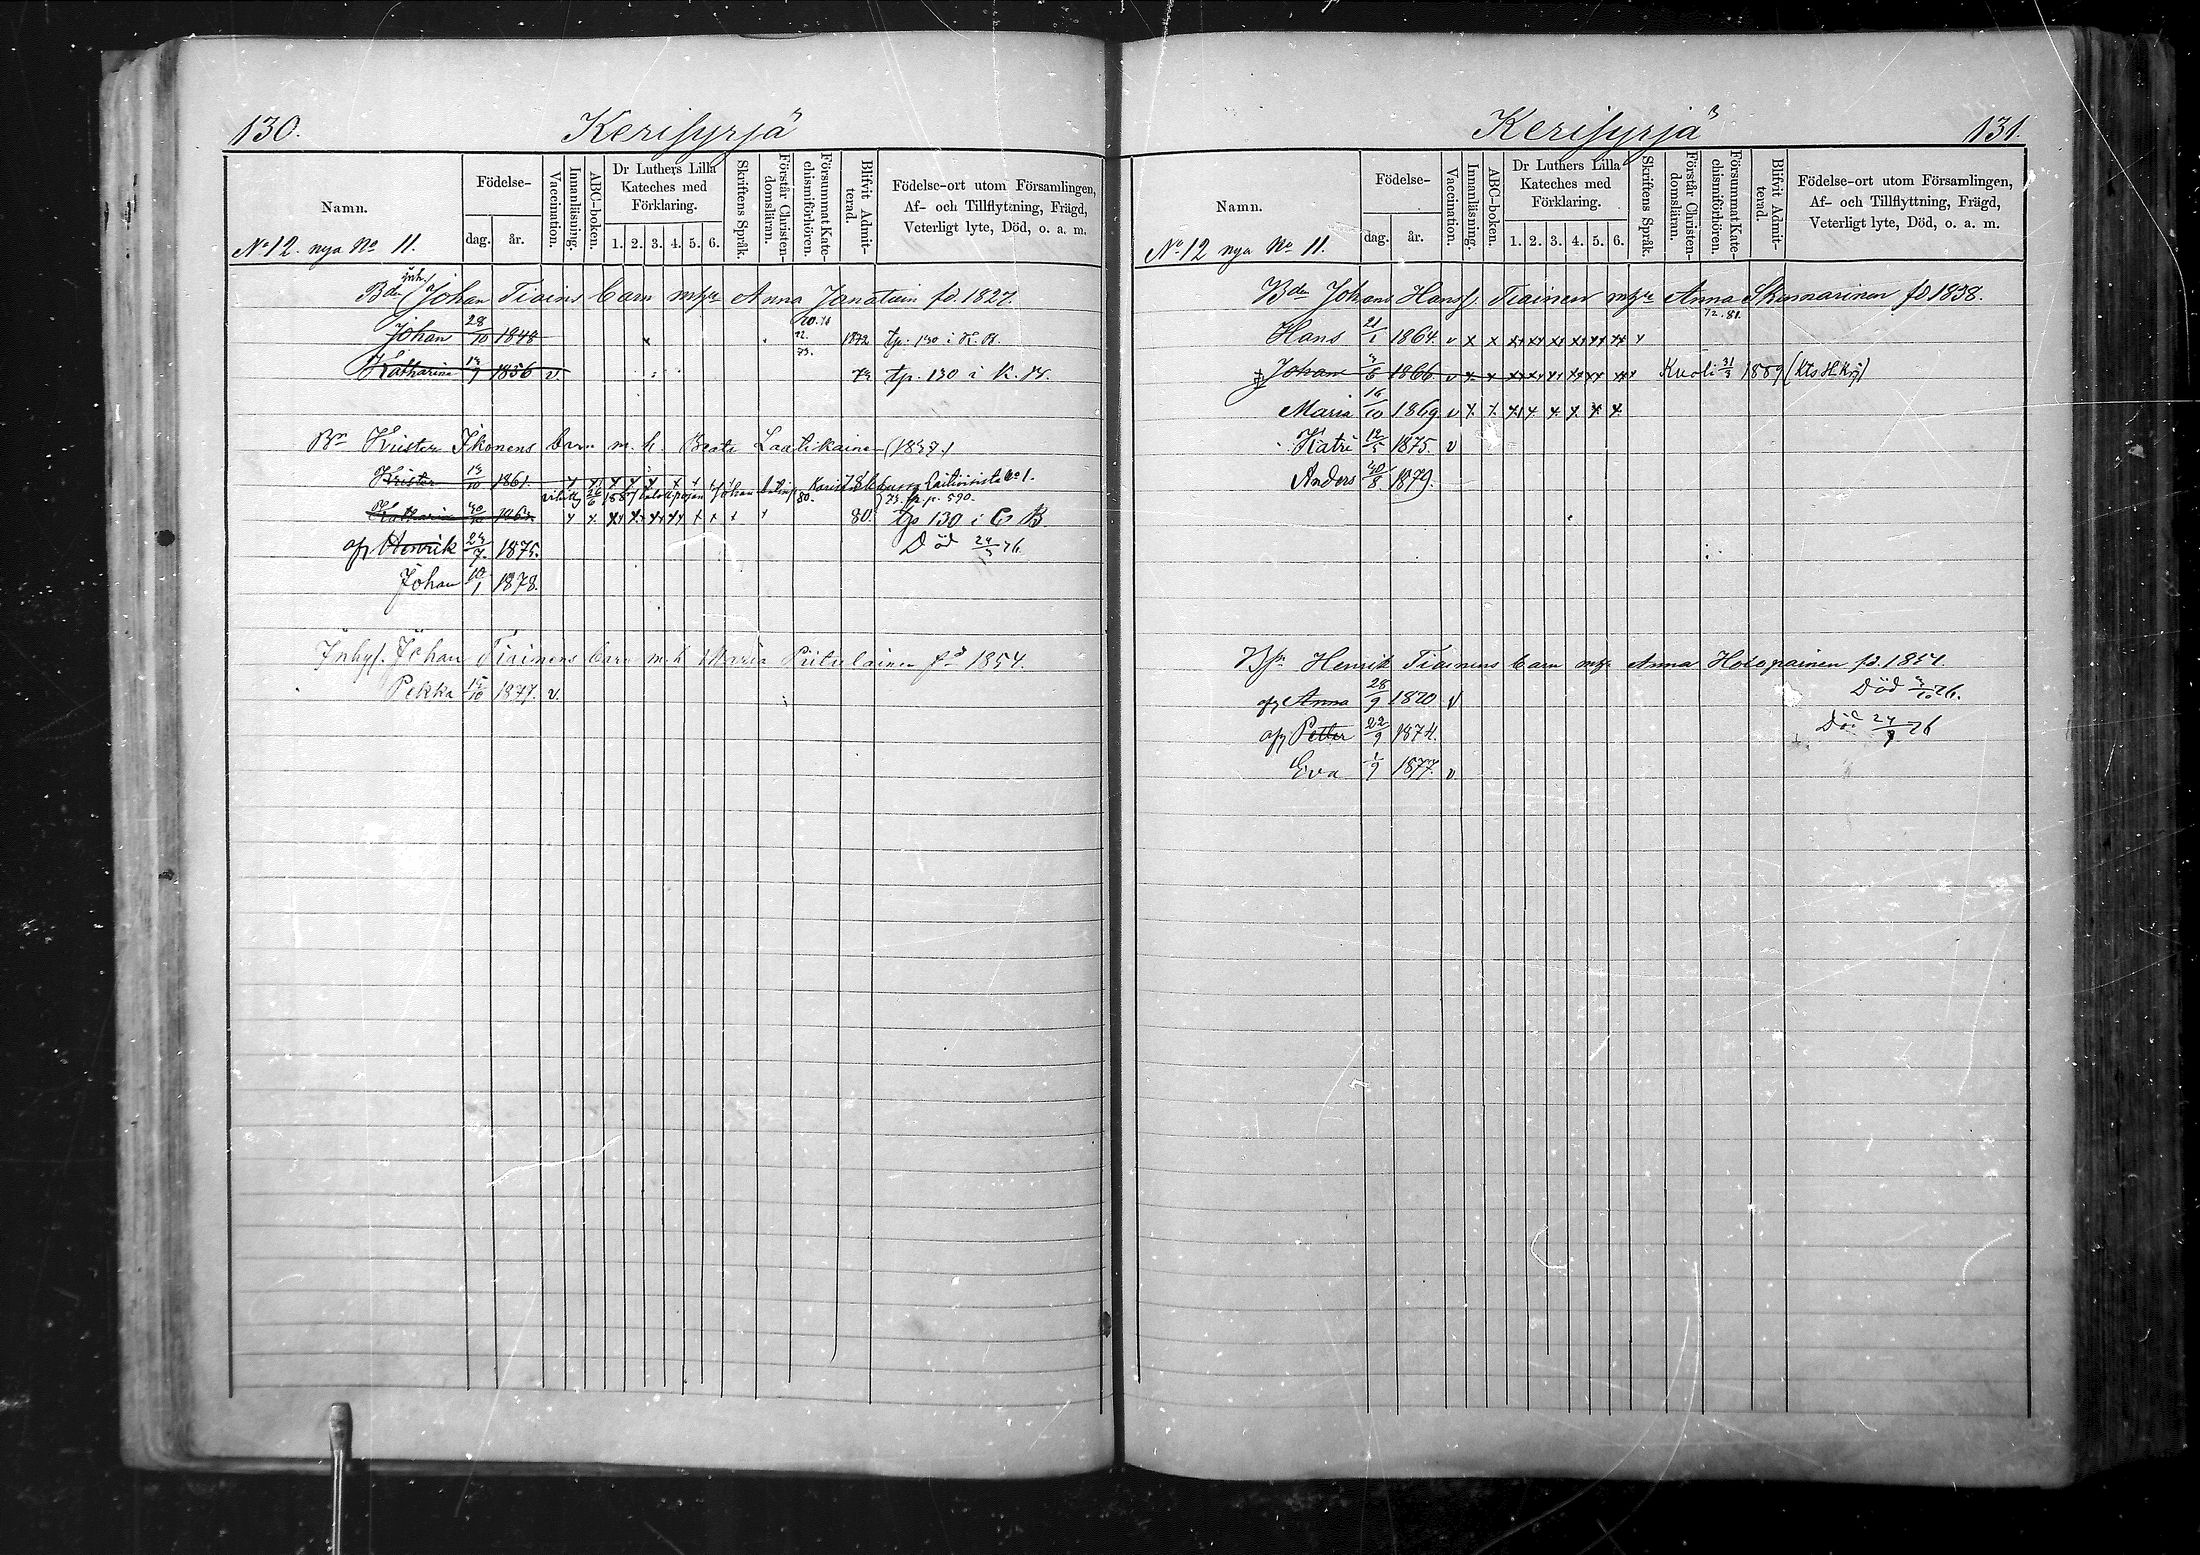 130.
Kerisyrjä
Namn.
Födelse-
dag.
år.
Vaccination.
Innanläsning.
ABC-boken.
Dr Luthers Lilla
Kateches med
Förklaring.
1. 2. 3. 4. 5. 6.
Skriftens Språk.
Förstår Christen-
domsläran.
Försummat Kate-
chismiförhören.
Blifvit Admit-
terad.
Födelse-ort utom Församlingen,
Af- och Tillflyttning, Frägd,
Veterligt lyte, Död, o. a. m.
No 12. nya No 11.
Bden Johan Tiains barn m hu Anna Janatuin fd. 1827.
Johan 28/10 1848 1872 tp. 130 i K. B.
Katharina 13/9 1856 v. tp. 130 i K. B.
Bn Krister Ikonens barn m. h. Beata Laatikainen (1837.)
Krister 13/10 1861.
Katharina 80. tp 130 i K B
Henrik 23/7. 1875. Död
Johan 10/1 1878.
Inhys. Johan Tiainens barn m. h Maria Piitulainen fd 1854.
Pekka 1877. v.
Kerisyrjä
131.
Namn.
Födelse-
dag.
år.
Vaccination.
Innanläsning.
ABC-boken.
Dr Luthers Lilla
Kateches med
Förklaring.
1. 2. 3. 4. 5. 6.
Skriftens Språk.
Förstår Christen-
domsläran.
Försummat Kate-
chismiförhören.
Blifvit Admit-
terad.
Födelse-ort utom Församlingen,
Af- och Tillflyttning, Frägd,
Veterligt lyte, Död, o. a. m.
No 12 nya No 11.
Bden Johans Hanss. Tiainen m hu Anna Skinnarinen fd 1838.
Hans 21/1 1864. v x x
Johan 1866 v Kuoli 31/3 1889 (kts H Kirj)
Maria 16/10 1869 v x x
Katri 12/5 1875. v
Anders 30/8 1879.
Bsn Henrik Tiainens barn m hu Anna Holopainen fd. 1854.
Anna 28/9 1870 v Död
Petter 22/9 1874. Död
Eva 1/9 1877. v